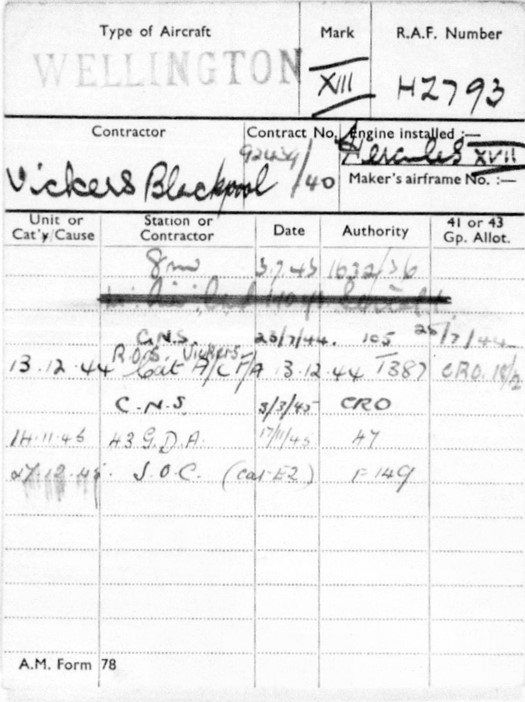 Type of Aircraft Mark R.A.F. Number
WELLINGTON XIII HZ793
Contractor Contract No. Engine installed :—
Vickers Blackpool 92439/40 Hercules XVII
Maker's airframe No. :—
Unit or Cat'y/Cause Station or Contractor Date Authority 41 or 43 Gp. Allot.
8 mu 3.7.43 1632/36
C.N.S. 23/7/44. 105 25/7/44
13.12.44 R.O.S. Vickers Cat A/C F/A 13.12.44 T387 CRO.
C.N.S 3/3/45 CRO
14.11.45 43 G.D.A. 17/11/45 47
27.12.45 S.O.C. (Cat E2) F149
A.M. Form 78